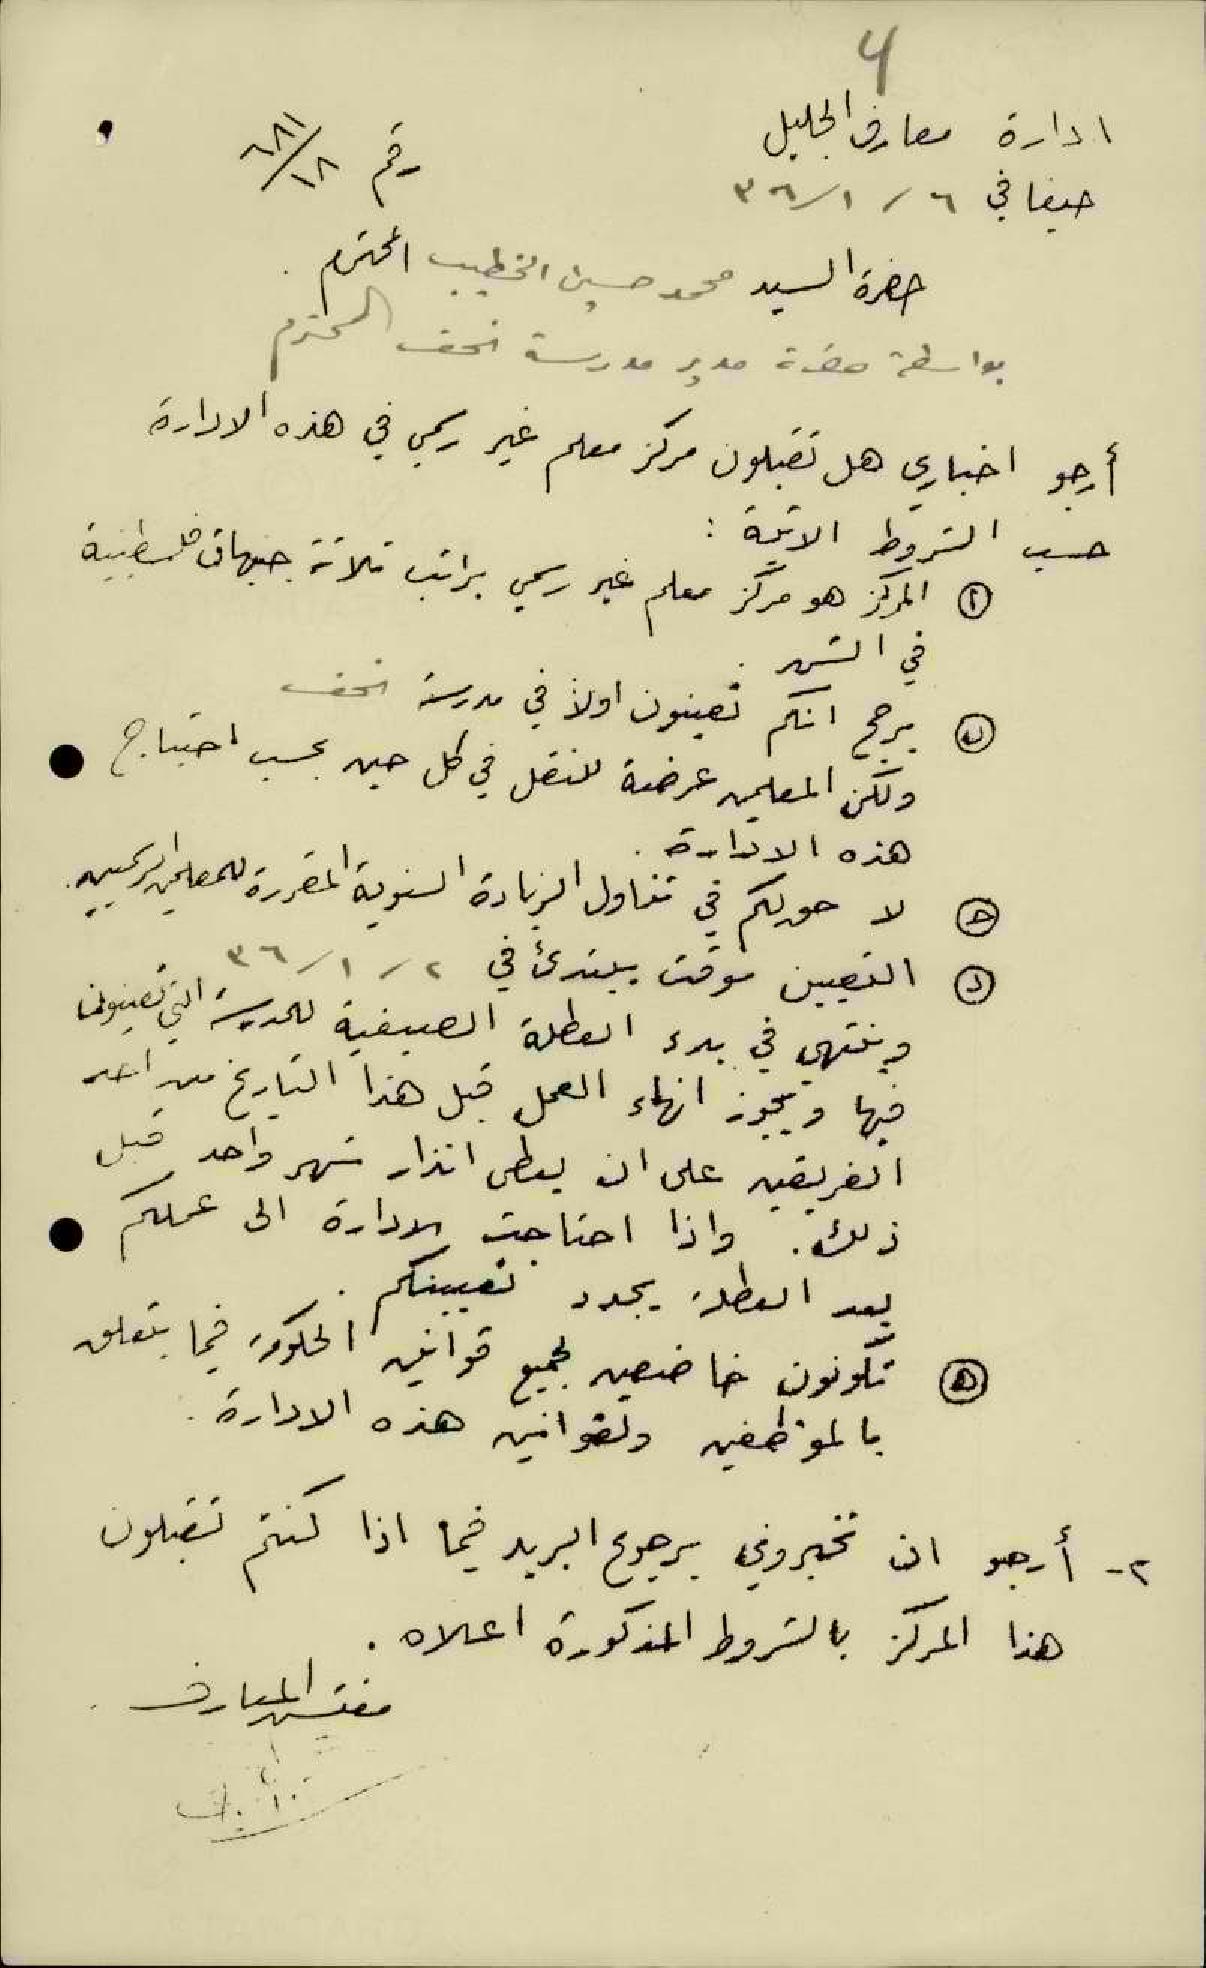 4
ادارة معارف الجليل
رقم ٦٨١/١٨
حيفا في ٦ / ١ / ٣٦
حضرة السيد محمد حسين الخطيب المحترم .
بواسطة حضرة مدير مدرسة نحف المحترم
أرجو اخباري هل تقبلون مركز معلم غير رسمي في هذه الادارة
حسب الشروط الاتية :
(أ) المركز هو مركز معلم غير رسمي براتب ثلاثة جنيهات فلسطينية
في الشهر .
(ب) يرجح انكم تعينون اولاً في مدرسة نحف
ولكن المعلمين عرضة للنقل في كل حين بحسب احتياج
هذه الادارة .
(ج) لا حق لكم في تناول الزيادة السنوية المقررة للمعلمين الرسميين .
(د) التعيين موقت يبتدئ في ٢ / ١ / ٣٦
وينتهي في بدء العطلة الصيفية للمدرسة التي تعينون
فيها ويجوز انهاء العمل قبل هذا التاريخ من احد
الفريقين على ان يعطى انذار شهر واحد قبل
ذلك . واذا احتاجت الادارة الى عملكم
بعد العطلة يجدد تعيينكم .
(ه) تكونون خاضعين لجميع قوانين الحكومة فيما يتعلق
بالموظفين ولقوانين هذه الادارة .
٢- أرجو ان تخبروني برجوع البريد فيما اذا كنتم تقبلون
هذا المركز بالشروط المذكورة اعلاه .
مفتش المعارف .